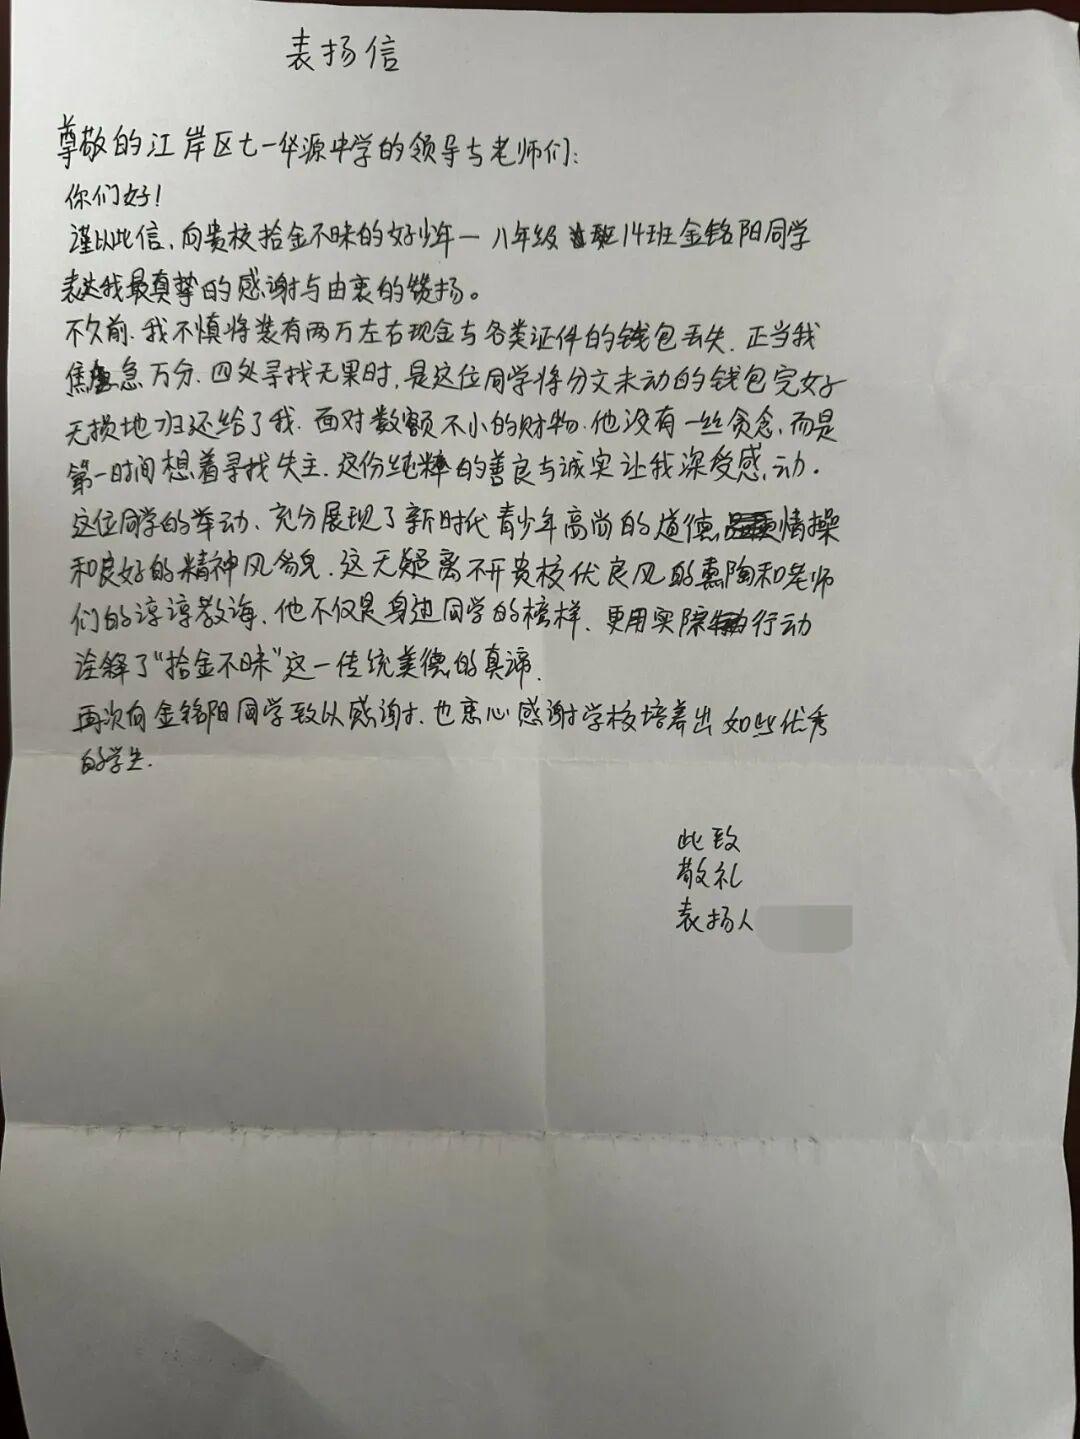 表扬信
尊敬的江岸区七一华源中学的领导与老师们:
你们好!
谨以此信、向贵校拾金不昧的好少年一八年级14班金铭阳同学
表达我最真挚的感谢与由衷的赞扬。
不久前、我不慎将装有两万左右现金与各类证件的钱包丢失、正当我
焦急万分、四处寻找无果时,是这位同学将分文未动的钱包完好
无损地归还给了我、面对数额不小的财物、他没有一丝贪念、而是
第一时间想着寻找失主、这份纯粹的善良与诚实让我深受感动.
这位同学的举动、充分展现了新时代青少年高尚的道德情操
和良好的精神风貌、这无疑离不开贵校优良风的熏陶和老师
们的谆谆教诲、他不仅是身边同学的榜样、更用实际行动
诠释了“拾金不昧”这一传统美德的真谛.
再次向金铭阳同学致以感谢、也衷心感谢学校培养出如此优秀
的学生.
此致
敬礼
表扬人